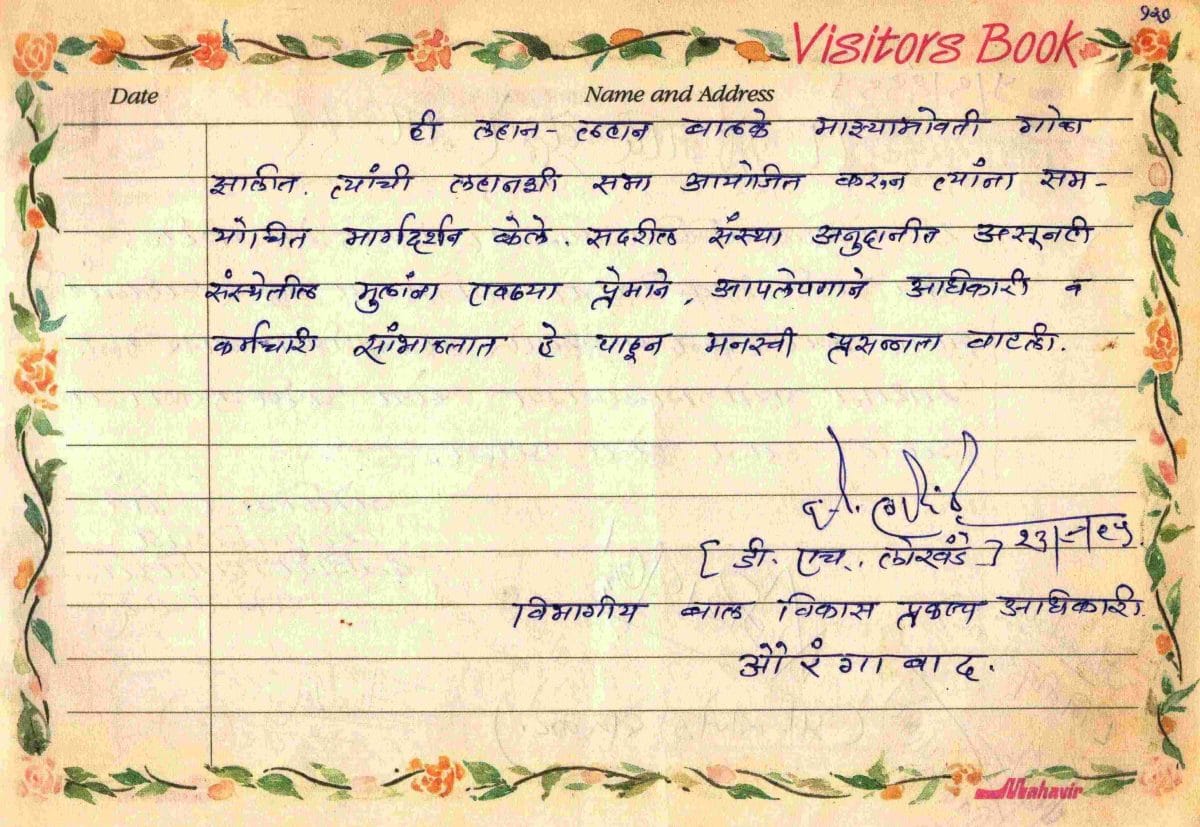 १२७
Visitors Book
Date Name and Address
ही लहान - लहान बालके माझ्याभोवती गोळा
झालीत. त्यांची लहानशी सभा आयोजित करून त्यांना सम-
योचित मार्गदर्शन केले. सदरील संस्था अनुदानीत असूनही
संस्थेतील मुलांना एवढ्या प्रेमाने, आपलेपणाने अधिकारी व
कर्मचारी सांभाळतात हे पाहून मनस्वी प्रसन्नता वाटली.
[ डी. एच. लोखंडे ]
विभागीय बाल विकास प्रकल्प अधिकारी.
औरंगाबाद.
Mahavir